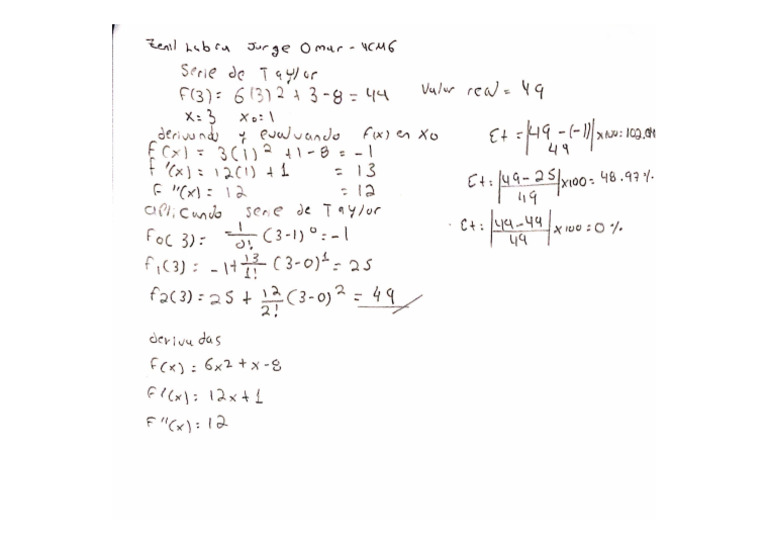 Zenil Labra Jorge Omar - 4CM6
Serie de Taylor
F(3) = 6(3)² + 3 - 8 = 49
Valor real = 49
x = 3 x₀ = 1
derivando y evaluando F(x) en x₀
f(x) = 3(1)² + 1 - 8 = -1
f'(x) = 12(1) + 1 = 13
F''(x) = 12 = 12
Aplicando serie de Taylor
f₀(3) = -1/0! (3-1)⁰ = -1
f₁(3) = -1 + 13/1! (3-0)¹ = 25
f₂(3) = 25 + 12/2! (3-0)² = 49
Et = |49 - (-1)/49| x100 = 102.04
Et = |49 - 25/49| x100 = 48.97%
Et = |49 - 49/49| x100 = 0%
derivadas
f(x) = 6x² + x - 8
F'(x) = 12x + 1
F''(x) = 12